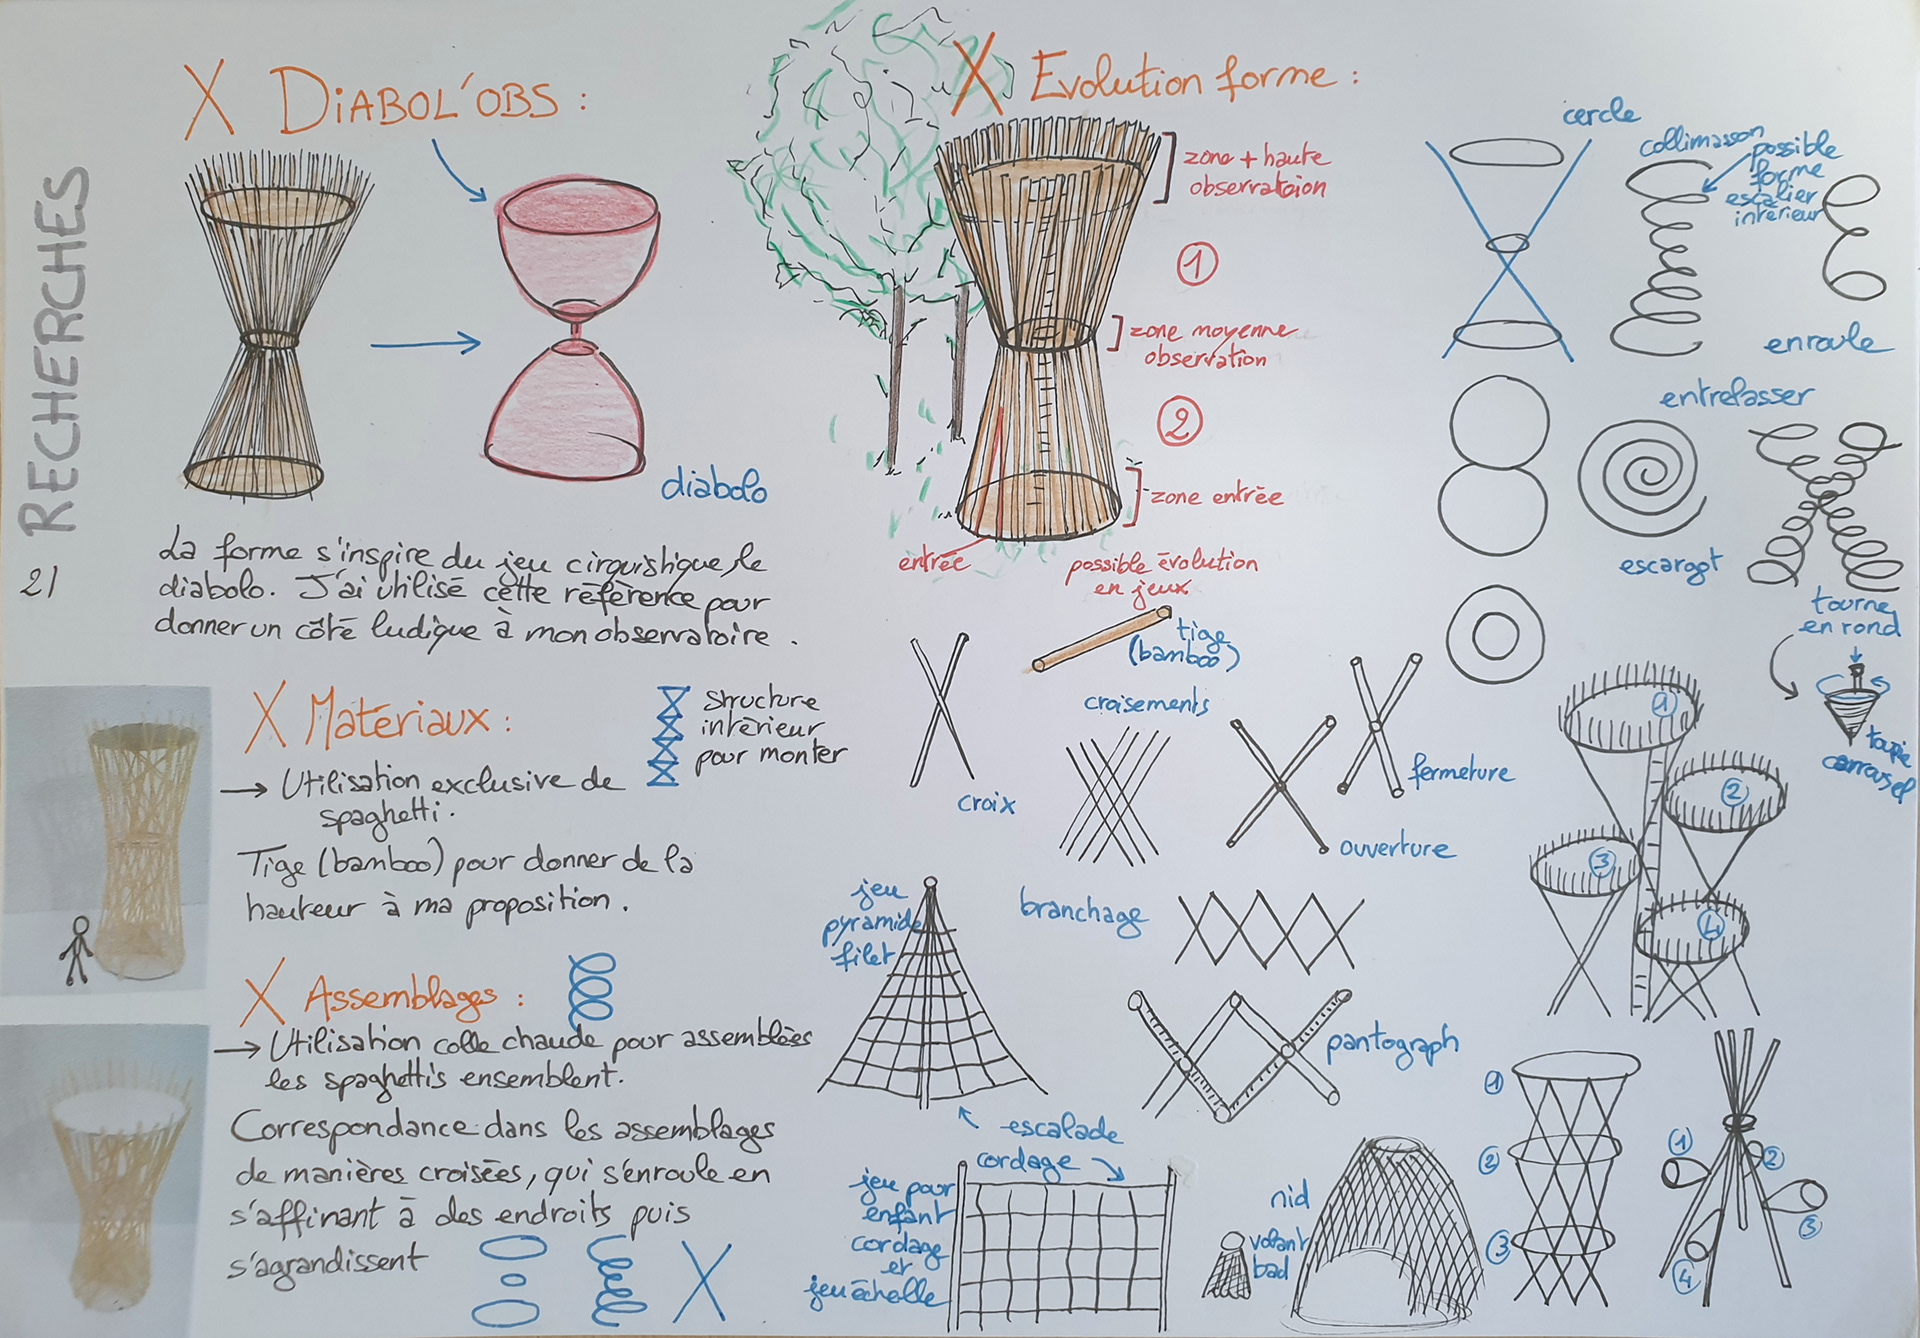 RECHERCHES
21
X DIABOL'OBS :
diabolo
La forme s'inspire du jeu cirquistique, le
diabolo. J'ai utilisé cette référence pour
donner un côté ludique à mon observatoire.
X Matériaux :
→ Utilisation exclusive de
spaghetti.
Tige (bamboo) pour donner de la
hauteur à ma proposition.
structure
intérieur
pour monter
X Assemblages :
→ Utilisation colle chaude pour assemblées
les spaghettis ensemblent.
Correspondance dans les assemblages
de manières croisées, qui s'enroule en
s'affinant à des endroits puis
s'agrandissent
X Evolution forme :
zone + haute
observatoion
1
zone moyenne
observation
2
zone entrée
entrée
possible évolution
en jeux
tige
(bamboo)
croix
croisements
fermeture
ouverture
branchage
pantograph
jeu
pyramide
filet
escalade
cordage
jeu pour
enfant
cordage
et
jeu échelle
nid
volant
bad
cercle
collimasson
possible
forme
escalier
intérieur
enroule
entrelasser
escargot
tourne
en rond
toupie
carrousel
1
2
3
4
1
2
3
1
2
3
4